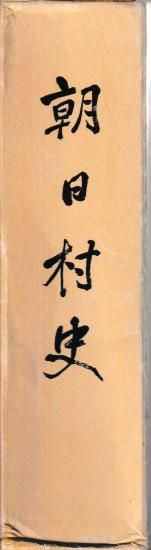 朝日村史